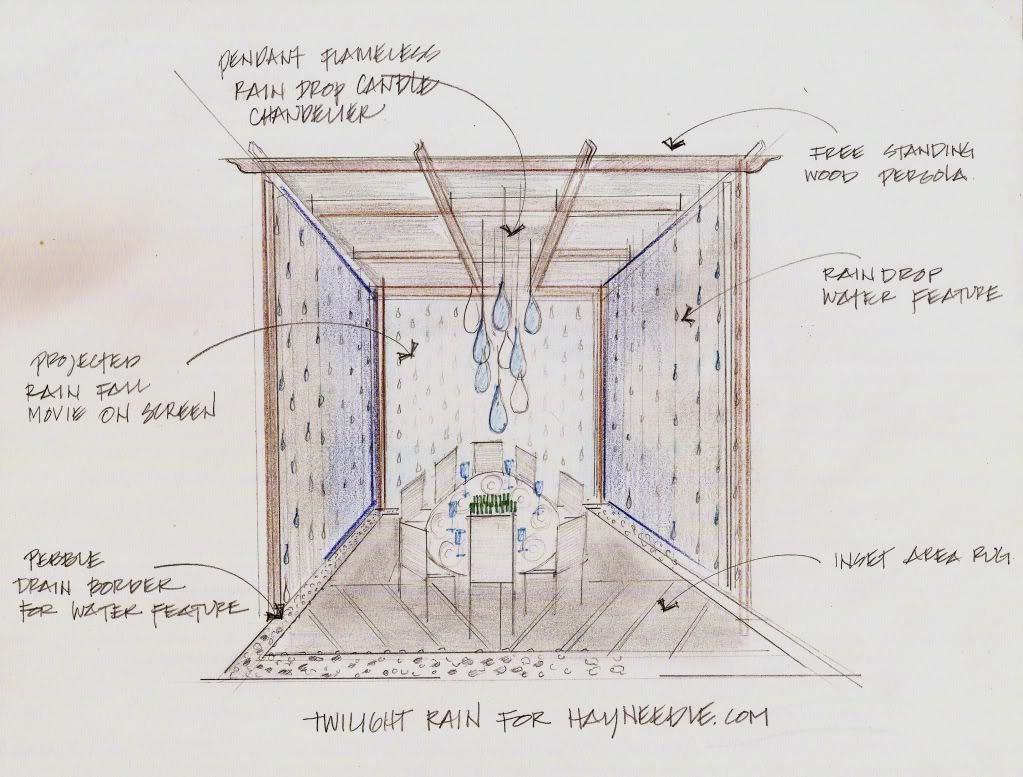 PENDANT FLAMELESS
RAIN DROP CANDLE
CHANDELIER
FREE STANDING
WOOD PERGOLA
RAINDROP
WATER FEATURE
PROJECTED
RAIN FALL
MOVIE ON SCREEN
PEBBLE
DRAIN BORDER
FOR WATER FEATURE
INSET AREA RUG
TWILIGHT RAIN FOR HAYNEEDLE.COM